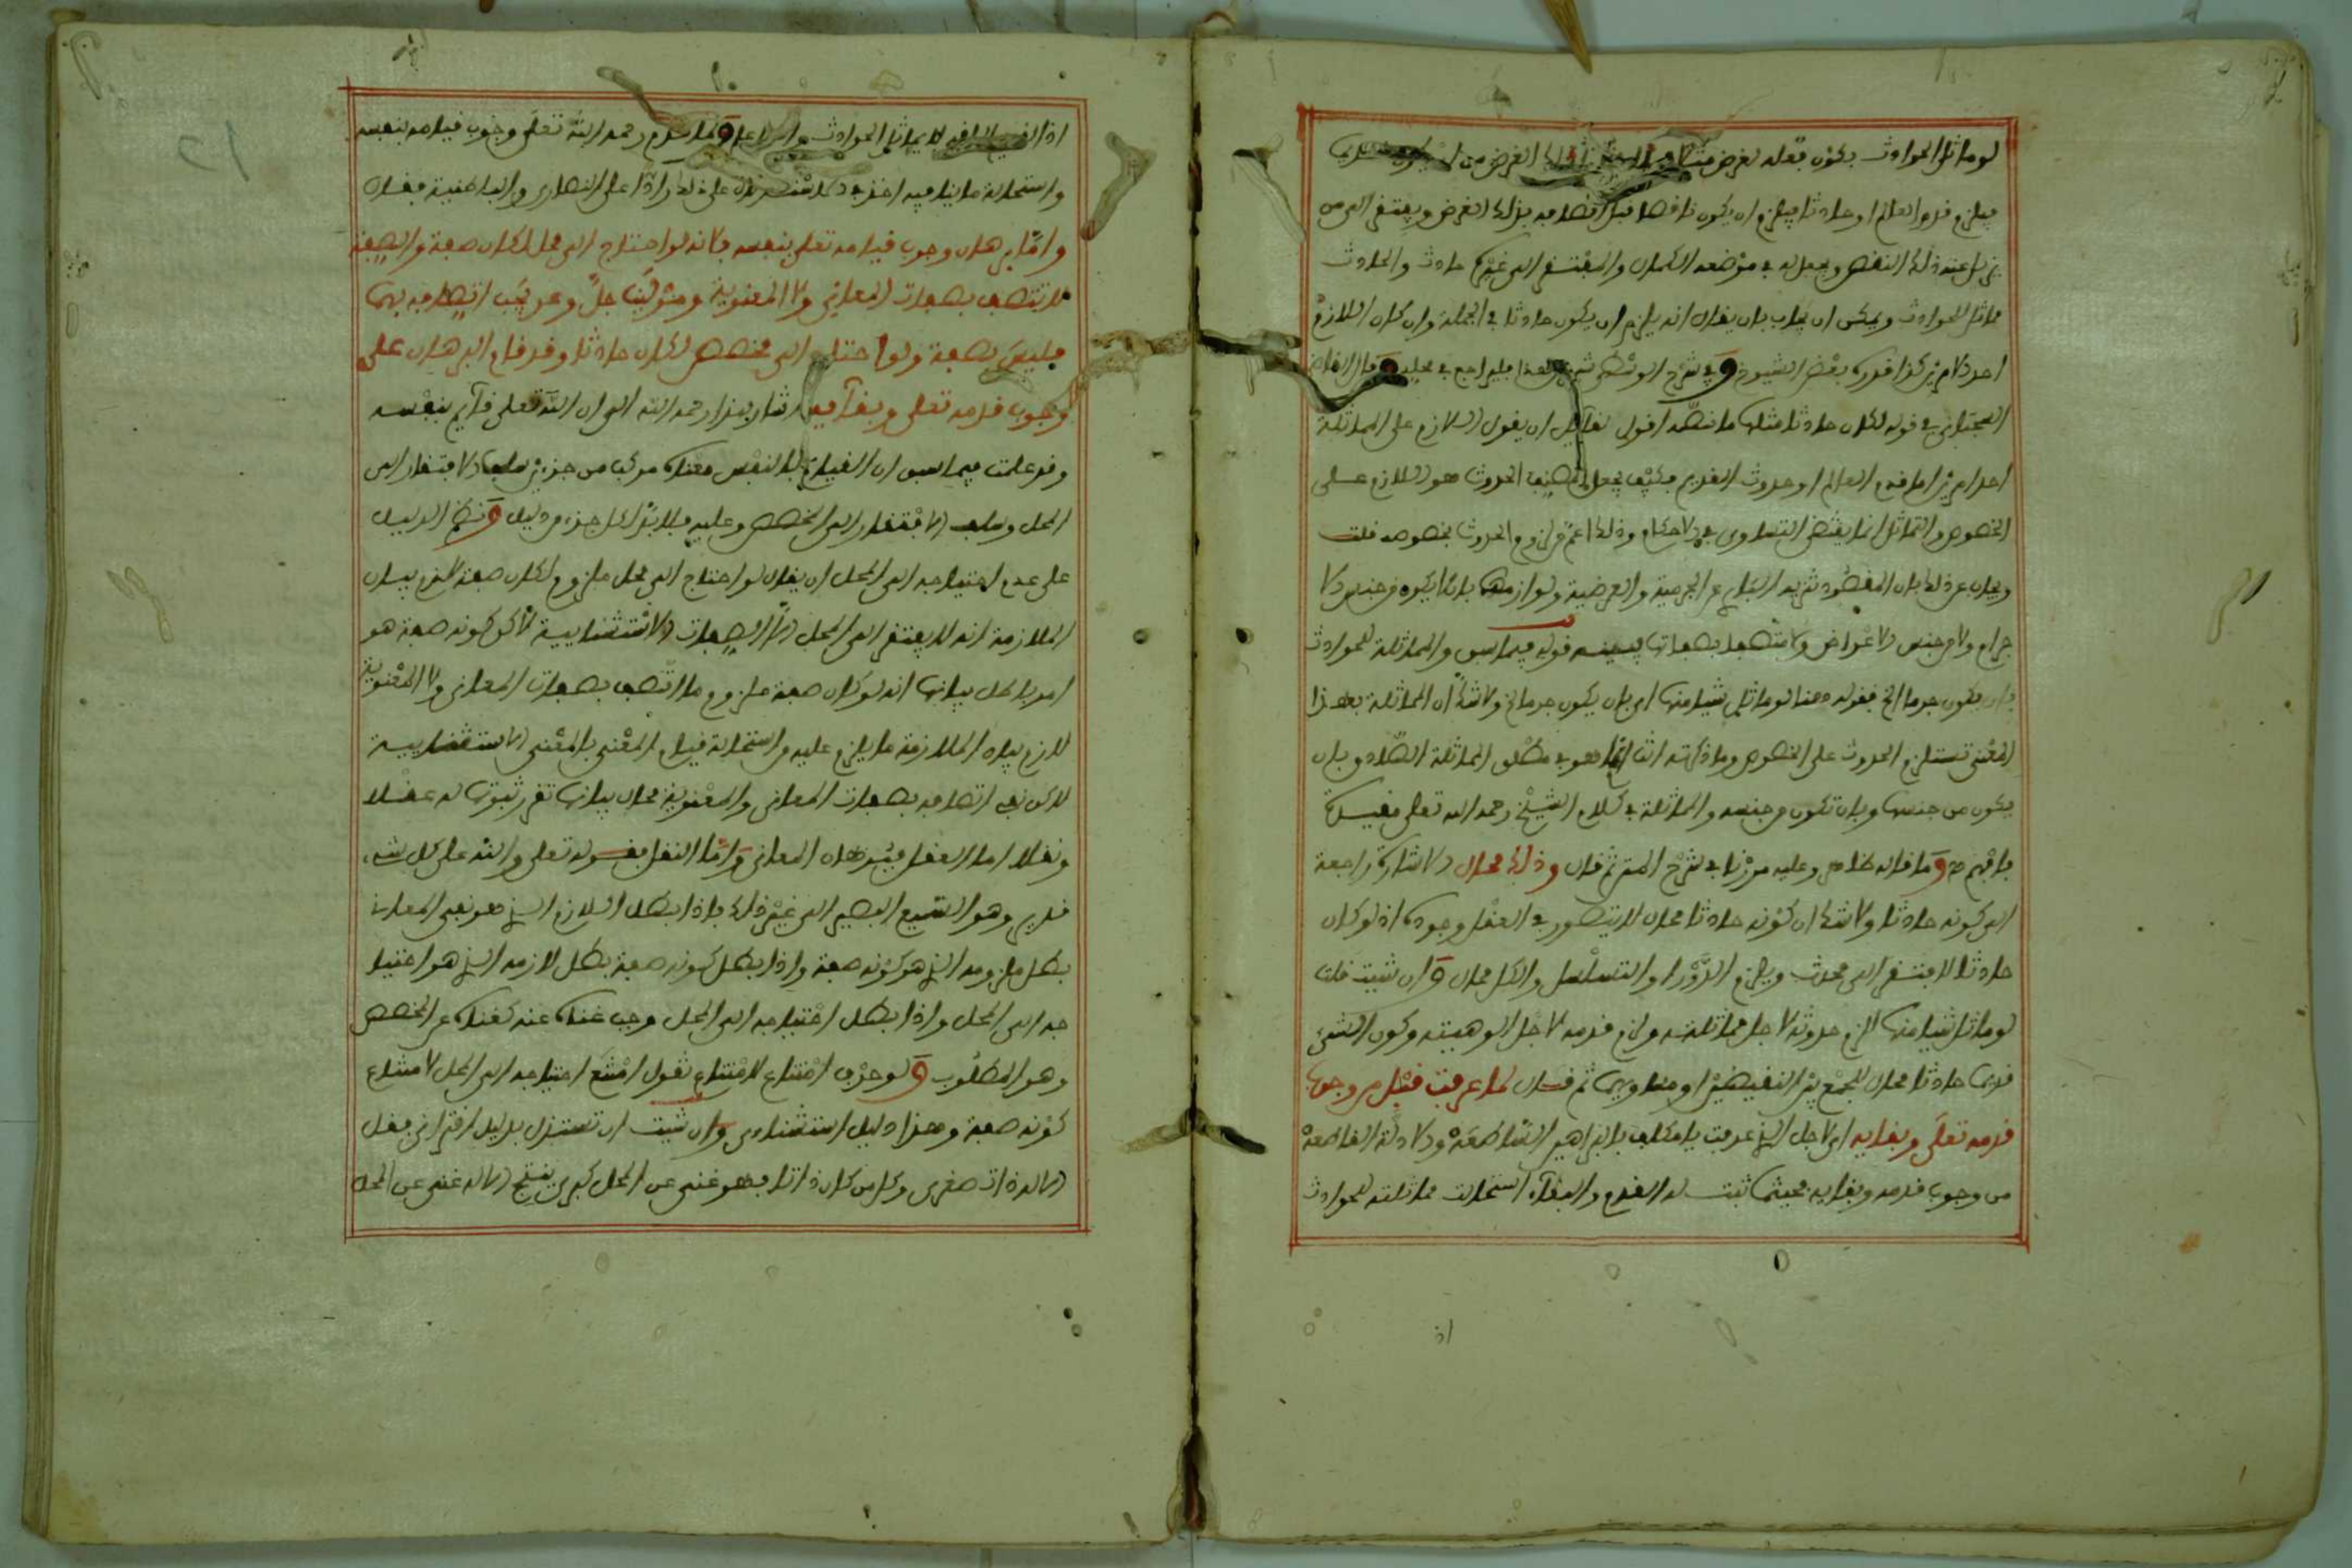 لو ماثل الحوادث بكون فعله لغرض
فيلزم قدم العالم او حادثا فيلزم ان يكون ناقصا قبل اتصافه بذلك الغرض ويفتقر الى من
يزيل عنه ذلك النقص ويجعل له في موضعه الكمال والمفتقر الى غيره حادث والحادث
مماثل للحوادث ويمكن ان يجاب بان يقال انه يلزم ان يكون حادثا في الجملة وان كان اللازم
احد الامرين كذا قرره بعض الشيوخ وفي شرح الوسطى
في قوله لكان حادثا مثلها ما نصه اقول لقائل ان يقول اللازم على المماثلة
احد امرين اما قدم العالم او حدوث القديم فكيف يجعل المصنف الحدوث هو اللازم على
الخصوص والتماثل انما يقتضي التساوي في الاحكام وذلك اعم من لزوم الحدوث بخصوصه قلت
ويجاب عن ذلك بان المقصود تنزيه الباري عن الجرمية والعرضية ولوازمهما بان لا يكون من جنس الا
جرام ولا من جنس الاعراض ولا متصفا بصفاتها يبينه قوله فيما سبق والمماثلة للحوادث
بان يكون جرما الخ فقوله هنا لو ماثل شيئا منها اي بان يكون جرما الخ ولا شك ان المماثلة بهذا
المعنى تستلزم الحدوث على الخصوص وما ذكرته انت انما هو في مطلق المماثلة الصادق بان
يكون من جنسها وبان تكون من جنسه والمماثلة في كلام الشيخ رحمه الله تعالى مقيدة
فافهم وما قاله ظاهر وعليه مررنا في شرح المتن ثم قال وذلك محال الاشارة راجعة
الى كونه حادثا ولا شك ان كونه حادثا محال لا يتصور في العقل وجوده اذ لو كان
حادثا لافتقر الى محدث ويلزم الدور او التسلسل والكل محال وان شئت قلت
لو ماثل شيئا منها لزم حدوثه لاجل مماثلته ولزم قدمه لاجل الوهيته وكون الشيء
قديما حادثا محال للجمع بين النقيضين او مساويهما ثم قال لما عرفت قبل من وجوب
قدمه تعالى وبقايه اي لاجل الذي عرفت يا مكلف بالبراهين الساطعة والادلة القاطعة
من وجوب قدمه وبقايه فحيثما ثبت له القدم والبقاء استحالت مماثلته للحوادث
اذ
اذا القديم الباقي لا يماثل الحوادث والله اعلم ولما قدم رحمه الله تعالى وجوب قيامه بنفسه
واستحالة ما ينافيه اخذ في الاستدلال على ذلك رادا على النصارى والباطنية فقال
واما برهان وجوب قيامه تعالى بنفسه فلانه لو احتاج الى محل لكان صفة والصفة
لا تتصف بصفات المعاني ولا المعنوية ومولانا جل وعز يجب اتصافه بهما
فليس بصفة ولو احتاج الى مخصص لكان حادثا وقد قام البرهان على
وجوب قدمه تعالى وبقايه اشار بهذا رحمه الله الى ان الله تعالى قائم بنفسه
وقد علمت فيما سبق ان القيام بالنفس معناه مركب من جزءين سلب الافتقار الى
المحل وسلب الافتقار الى المخصص وعليه فلا بد لكل جزء من دليل ونظم الدليل
على عدم احتياجه الى المحل ان يقال لو احتاج الى محل ملزوم لكان صفة لازم بيان
الملازمة انه لا يفتقر الى المحل الا الصفات الاستثنائية لاكن كونه صفة هو
امر باطل بيانها انه لو كان صفة ملزوم ما اتصف بصفات المعاني ولا المعنوية
لازم بيان الملازمة ما يلزم عليه من استحالة قيام المعنى بالمعنى الاستثنائية
لاكن نفي اتصافه بصفات المعاني والمعنوية محال بيانها تقرر ثبوتها له عقلا
ونقلا اما العقل فبرهان المعاني واما النقل فقوله تعالى والله على كل شيء
قدير وهو السميع البصير الى غير ذلك فاذا بطل اللازم الذي هو نفي المعاني
بطل ملزومه الذي هو كونه صفة واذا بطل كونه صفة بطل لازمه الذي هو احتيا
جه الى المحل واذا بطل احتياجه الى المحل وجب غناه عنه كغناه عن المخصص
وهو المطلوب ولو حرف امتناع لامتناع تقول امتنع احتياجه الى المحل لامتناع
كونه صفة وهذا دليل استثنائي وان شئت ان تستدل بدليل اقتراني فقل
الاله ذات صغرى وكل من كان ذاتا فهو غني عن المحل كبرى ينتج الاله غني عن المحل